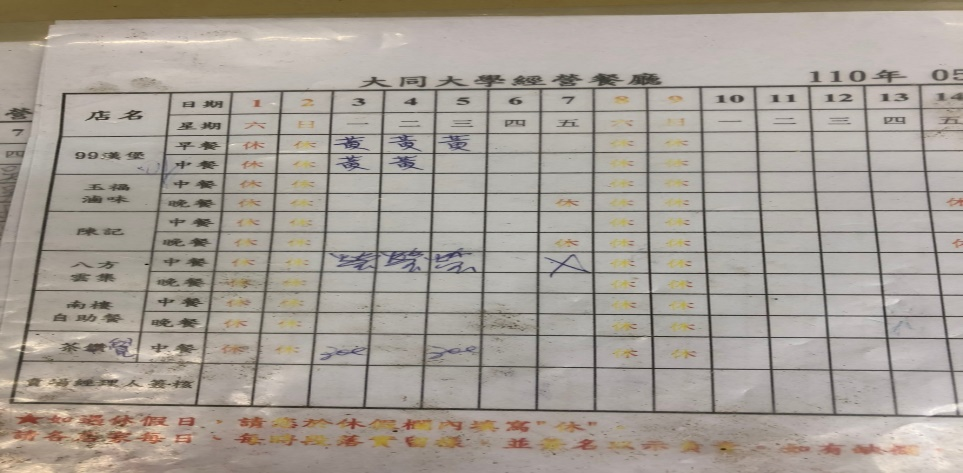 大同大學經營餐廳 110年 05
店名 日期 1 2 3 4 5 6 7 8 9 10 11 12 13 14
星期 六 日 一 二 三 四 五 六 日 一 二 三 四 五
99漢堡 早餐 休 休 黃 黃 黃 休 休
中餐 休 休 黃 黃 休 休
玉福滷味 中餐 休 休 休 休
晚餐 休 休 休 休 休 休
陳記 中餐 休 休 休 休
晚餐 休 休 休 休 休 休
八方雲集 中餐 休 休 休 休
晚餐 休 休 休 休
南樓自助餐 中餐 休 休 休 休
晚餐 休 休 休 休
茶 中餐 休 休 Zoe Zoe 休 休
賣場經理人簽核
如遇休假日，請您於休假欄內填寫"休"
請各 每日、每時段落實自 ，並簽名以示負責， 如有缺
營
7
四